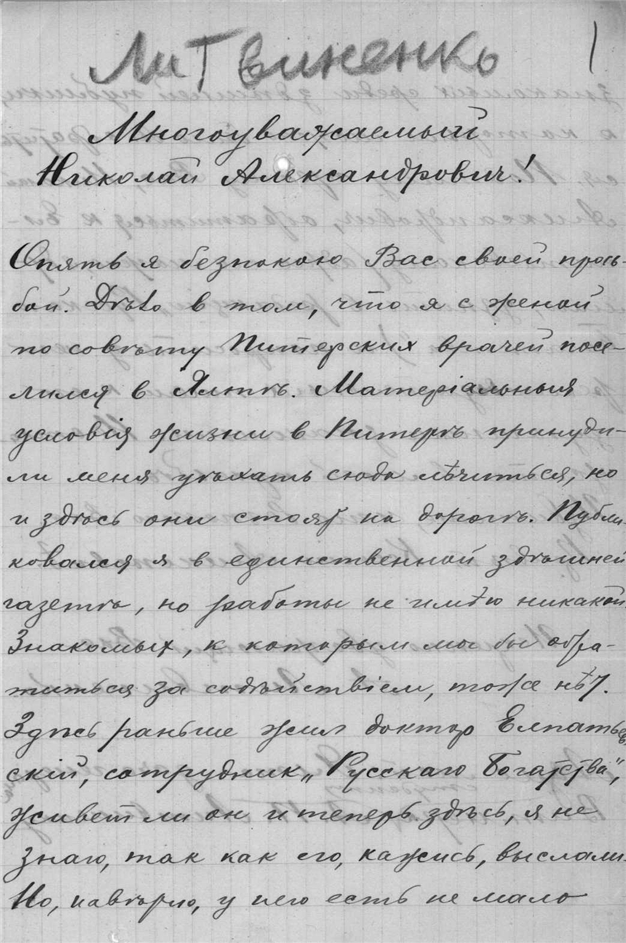 Литвиненко
1
Многоуважаемый
Николай Александрович!
Опять я безпокою Вас своей прось-
бой. Дѣло в том, что я с женой
по совѣту Питерских врачей посе-
лился в Ялтѣ. Матеріальныя
условія жизни в Питерѣ принуди-
ли меня уѣхать сюда лѣчиться, но
и здѣсь они стоят на дорогѣ. Публи-
ковался я в единственной здѣшней
газетѣ, но работы не имѣю никакой.
Знакомых, к которым мог бы обра-
титься за содѣйствіем, тоже нѣт.
Здѣсь раньше жил доктор Елпатьев-
скій, сотрудник „Русскаго Богатства",
живет ли он и теперь здѣсь, я не
знаю, так как его, кажись, выслали.
Но, навѣрно, у него есть не мало